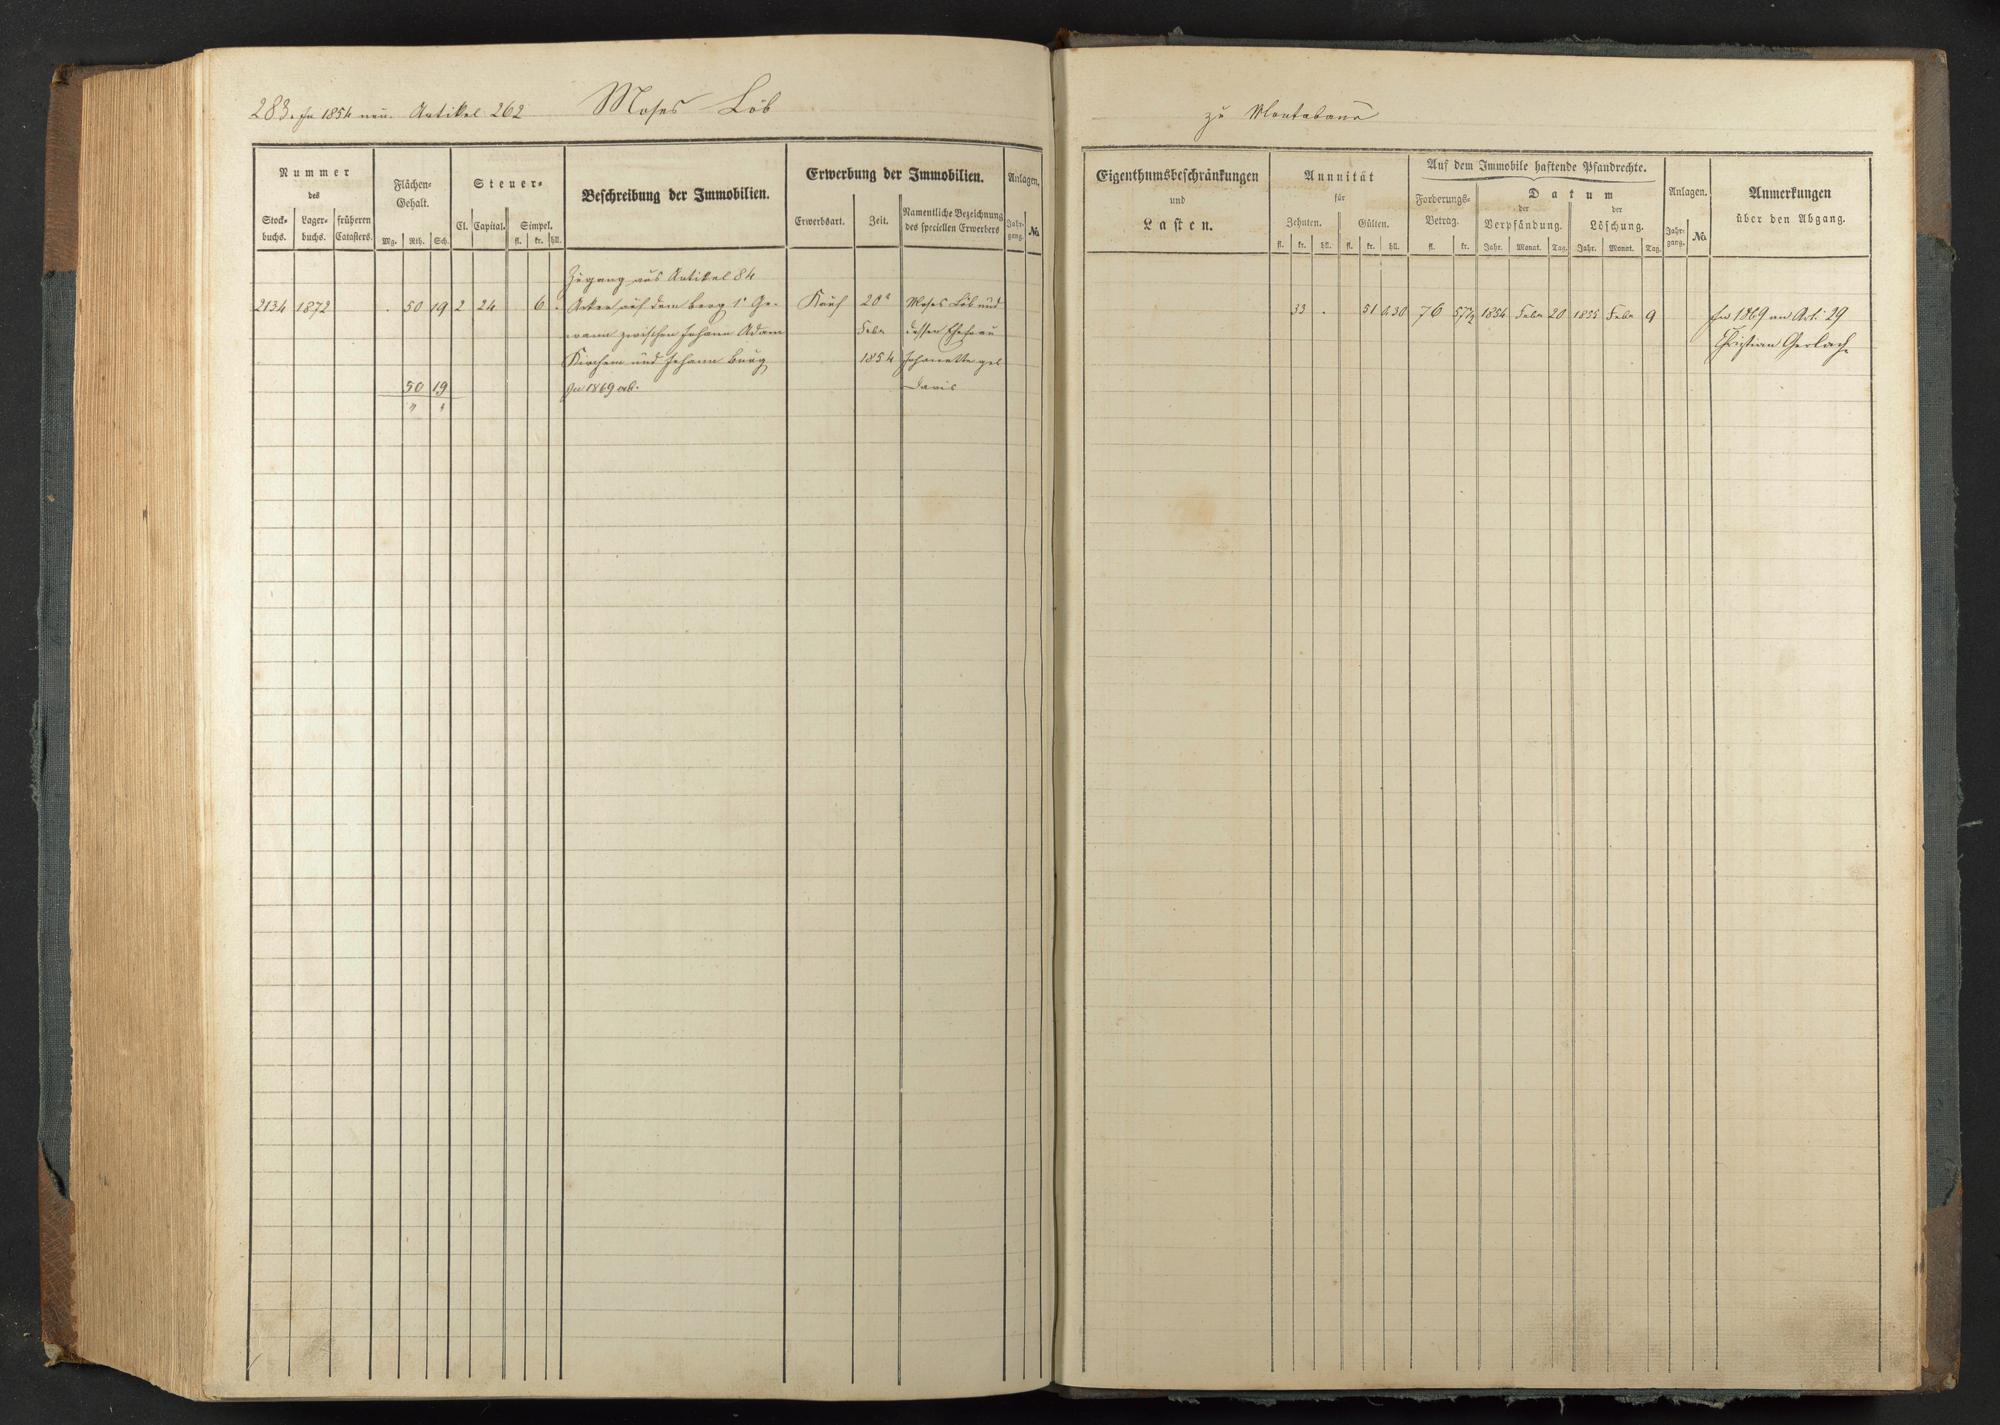 283. In 1854 neu. Artikel 262 Moses Löb
Nummer
des
Stock-
buchs.
Lager-
buchs.
früheren
Catasters.
Flächen-
Gehalt.
Mg. Rth. Sch.
Steuer-
Cl. Capital. Simpel.
fl. kr. hll.
Beschreibung der Immobilien.
Erwerbung der Immobilien.
Erwerbsart. Zeit.
Namentliche Bezeichnung
des speciellen Erwerbers
Anlagen.
Jahr-
gang. No.
Zugang aus Artikel 84
2134 1872 . 50 19 2 24 6 . Acker auf dem Berg 1r Ge- Kauf 20n Moses Löb und
wann zwischen Johann Adam Febr dessen Ehefrau
Kirchem und Johann Burg 1854 Johanette geb
50 19 In 1869 ab. Davis
" "
zu Montabaur
Eigenthumsbeschränkungen
und
Lasten.
Annuität
für
Zehnten. Gülten.
fl. kr. hll. fl. kr. hll.
Auf dem Immobile haftende Pfandrechte.
Forderungs-
Betrag.
fl. kr.
Datum
der
Verpfändung.
Jahr. Monat. Tag.
der
Löschung.
Jahr. Monat. Tag.
Anlagen.
Jahr-
gang. No.
Anmerkungen
über den Abgang.
33 . 51 0.30 76 57½ 1854 Febr 20 1855 Febr 9 In 1869 an Art. 29
Christian Gerlach